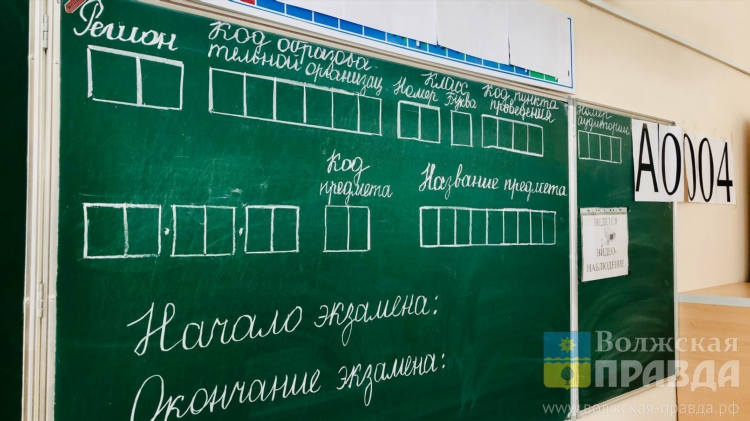 Регион
Код образова-
тельной организац
Класс
Номер Буква
Код пункта
проведения
Номер
аудитории
А0004
Код
предмета
Название предмета
ВЕДЕТСЯ
ВИДЕО-
НАБЛЮДЕНИЕ
Начало экзамена:
Окончание экзамена:
Волжская
ПРАВДА
www.волжская-правда.рф